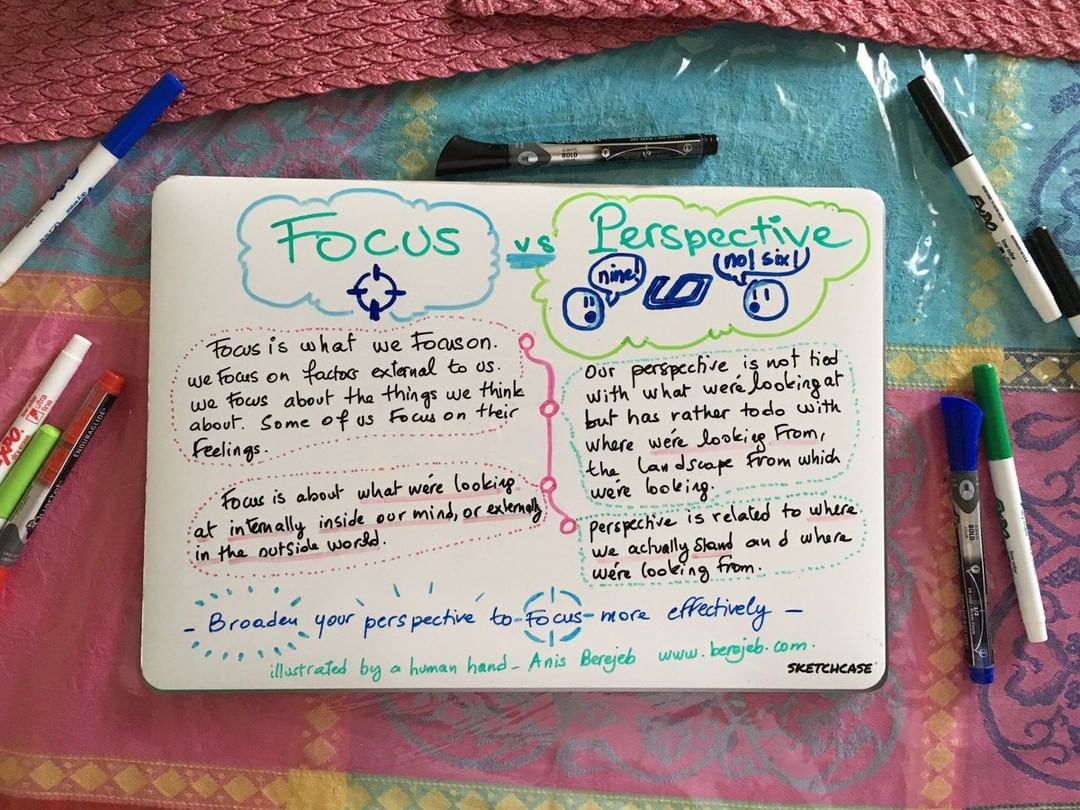 Focus
vs
Perspective
nine!
no! six!
Focus is what we Focus on.
we Focus on factors external to us.
we Focus about the things we think
about. Some of us Focus on their
Feelings.
Focus is about what we're looking
at internally inside our mind, or externally
in the outside world.
Our perspective is not tied
with what we're looking at
but has rather to do with
where we're looking From,
the landscape From which
we're looking.
perspective is related to where
we actually stand and where
we're looking from.
- Broaden your perspective to - Focus - more effectively -
illustrated by a human hand - Anis Berejeb www.berejeb.com.
SKETCHCASE
BOLD
1/2
EXPO
ultra
fine
EXPO
ENDURAGLIDE
BOLD
1/2